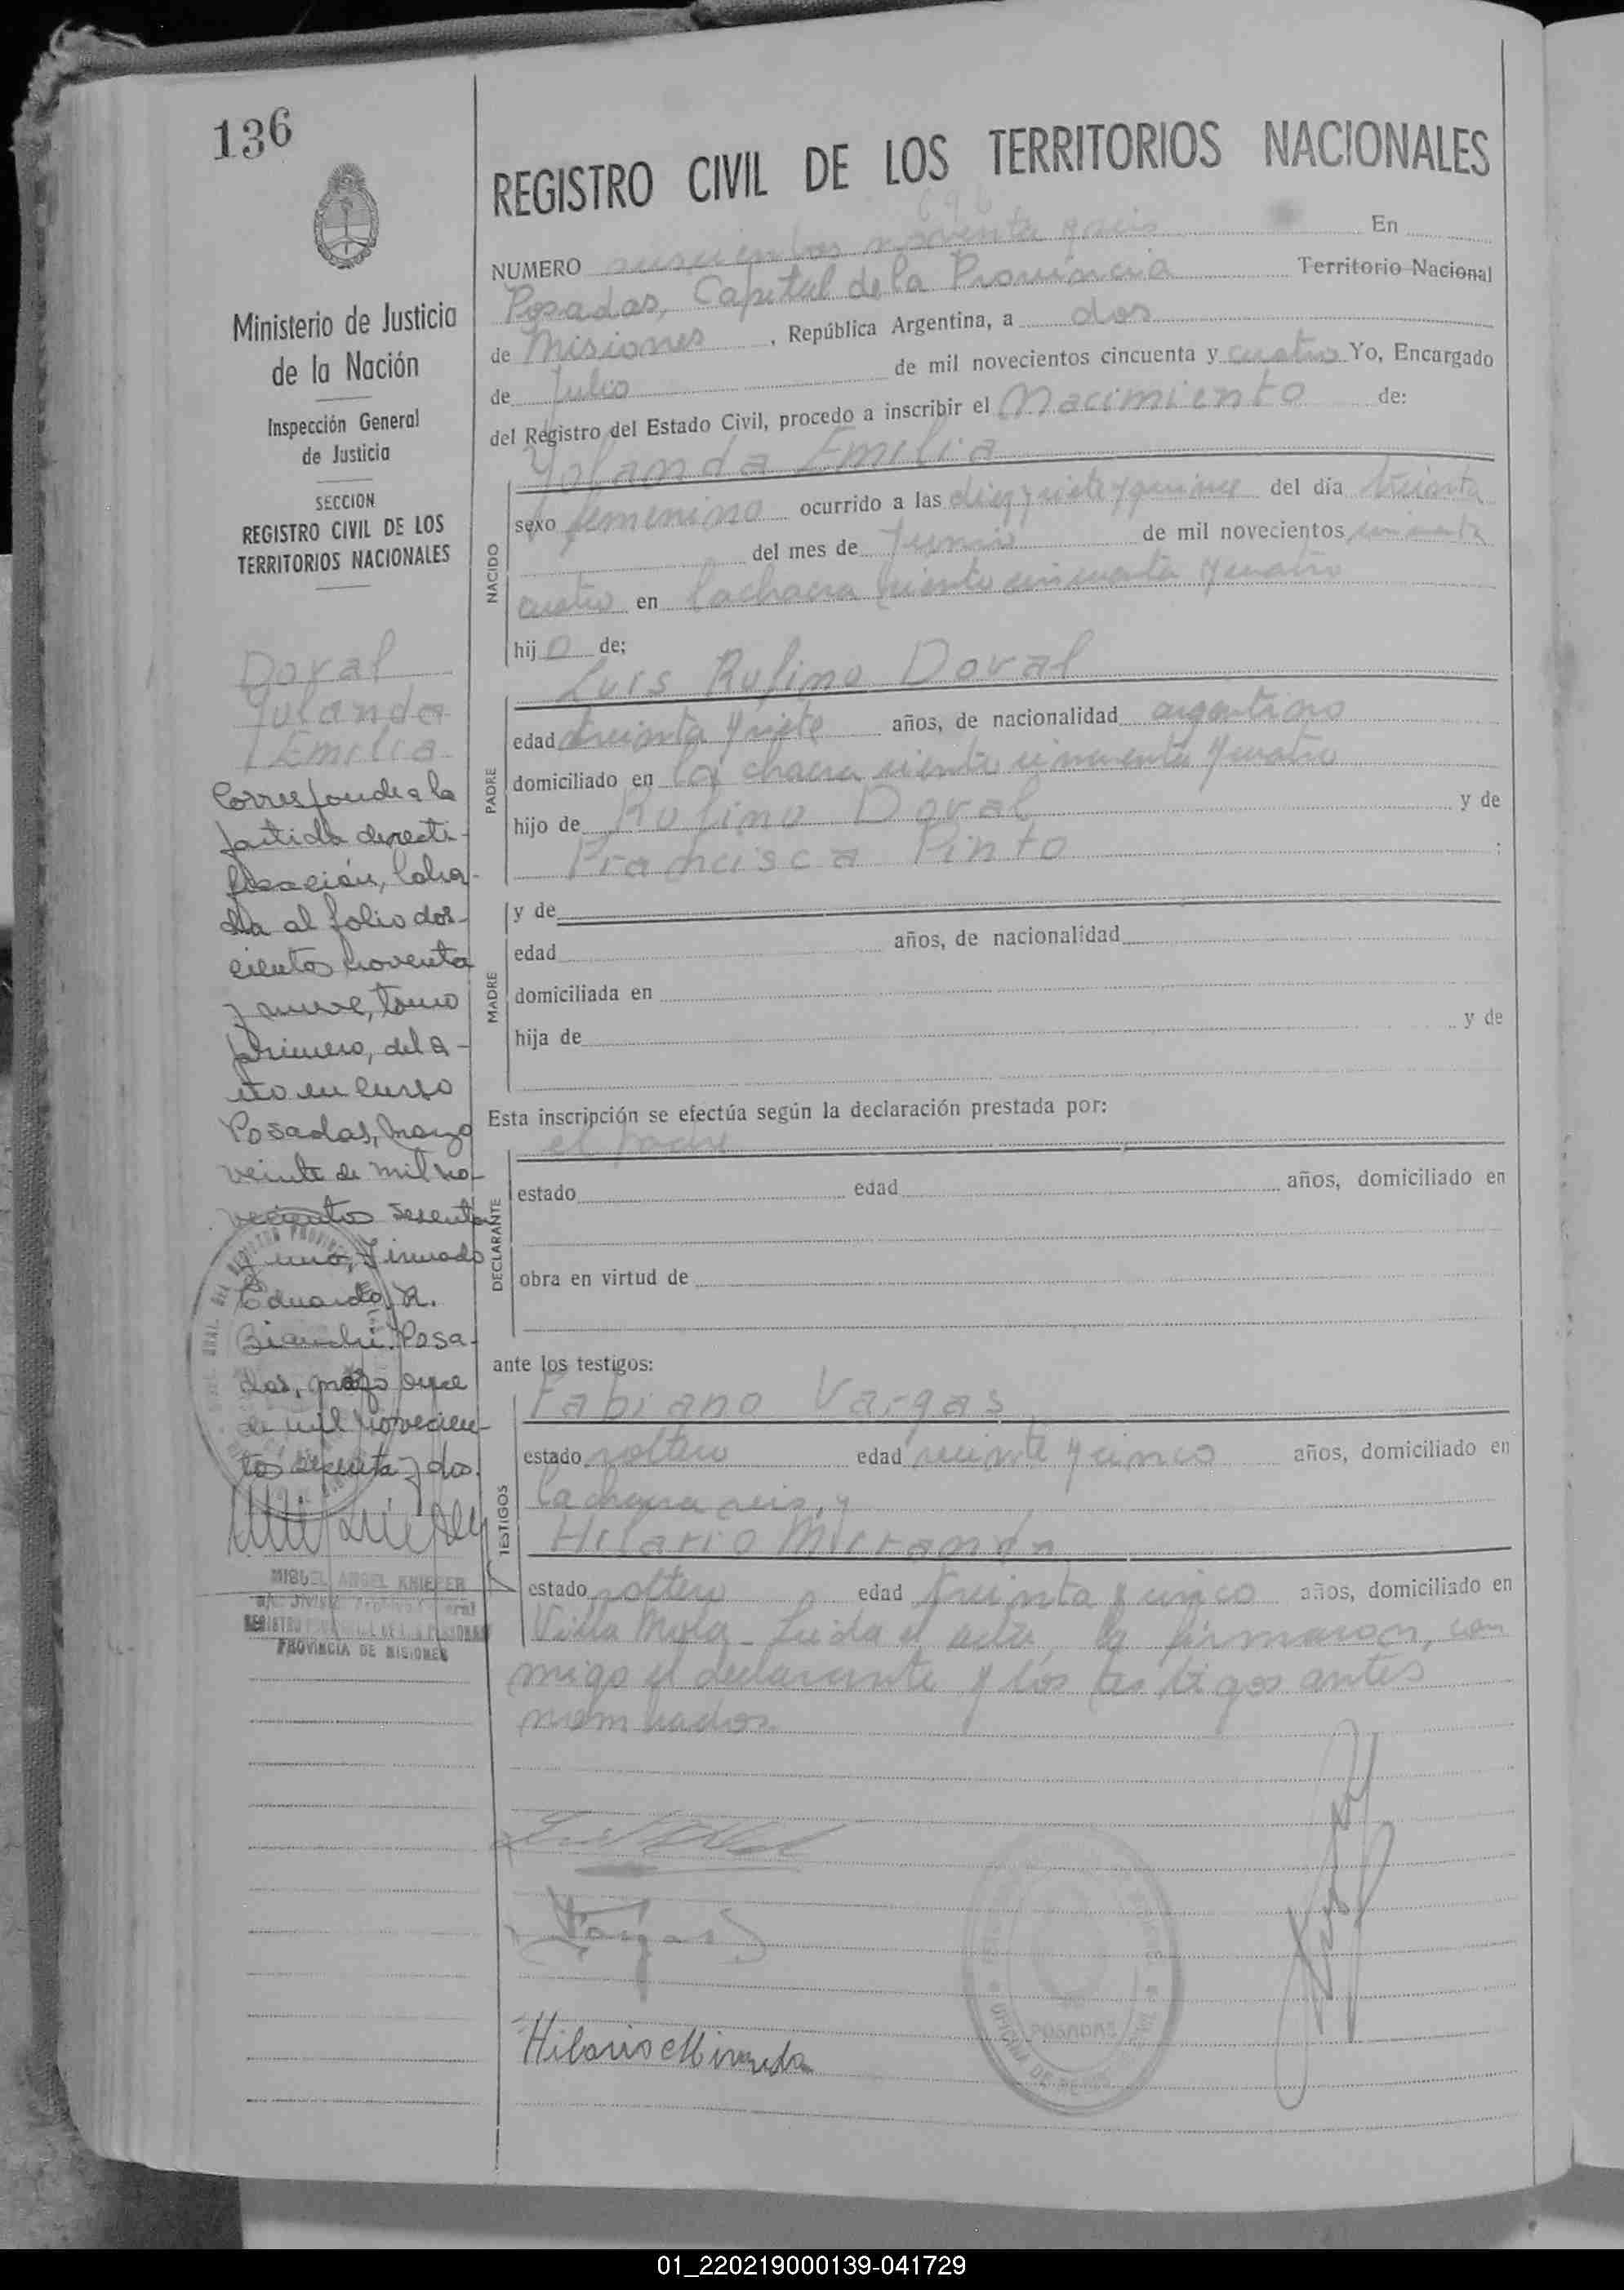 136
Ministerio de Justicia
de la Nación
Inspección General
de Justicia
SECCION
REGISTRO CIVIL DE LOS
TERRITORIOS NACIONALES
Doval
Yolanda
Emilia
Corresponde a la
partida de recti-
ficación, labra-
da al folio dos-
cientos noventa
y nueve, tomo
primero, del a-
ño en curso
Posadas, marzo
veinte de mil no-
vecientos sesenta
y uno, Firmado
Eduardo R.
Bianchi. Posa-
das, mayo once
de mil novecien-
tos sesenta y dos.
MIGUEL ANGEL KNIEPER
PROVINCIA DE MISIONES
REGISTRO CIVIL DE LOS TERRITORIOS NACIONALES
696
NUMERO seiscientos noventa y seis En
Posadas, Capital de la Provincia Territorio Nacional
de Misiones, República Argentina, a dos
de Julio de mil novecientos cincuenta y cuatro Yo, Encargado
del Registro del Estado Civil, procedo a inscribir el Nacimiento de:
Yolanda Emilia
NACIDO
sexo femenino ocurrido a las diez y siete y quince del día treinta
del mes de Junio de mil novecientos cincuenta
cuatro en la chacra ciento cincuenta y cuatro
hijo de;
Luis Rufino Doval
PADRE
edad treinta y siete años, de nacionalidad argentino
domiciliado en la chacra ciento cincuenta y cuatro
hijo de Rufino Doval y de
Francisca Pinto
MADRE
y de
edad años, de nacionalidad
domiciliada en
hija de y de
Esta inscripción se efectúa según la declaración prestada por:
el padre
DECLARANTE
estado edad años, domiciliado en
obra en virtud de
ante los testigos:
Fabiano Vargas
TESTIGOS
estado soltero edad veinte y cinco años, domiciliado en
la chacra seis, y
Hilario Miranda
estado soltero edad treinta y cinco años, domiciliado en
Villa Mola - Leida el acta, la firmaron, con
migo el declarante y los testigos antes
nombrados.
Vargas
Hilario Miranda
POSADAS
01_220219000139-041729